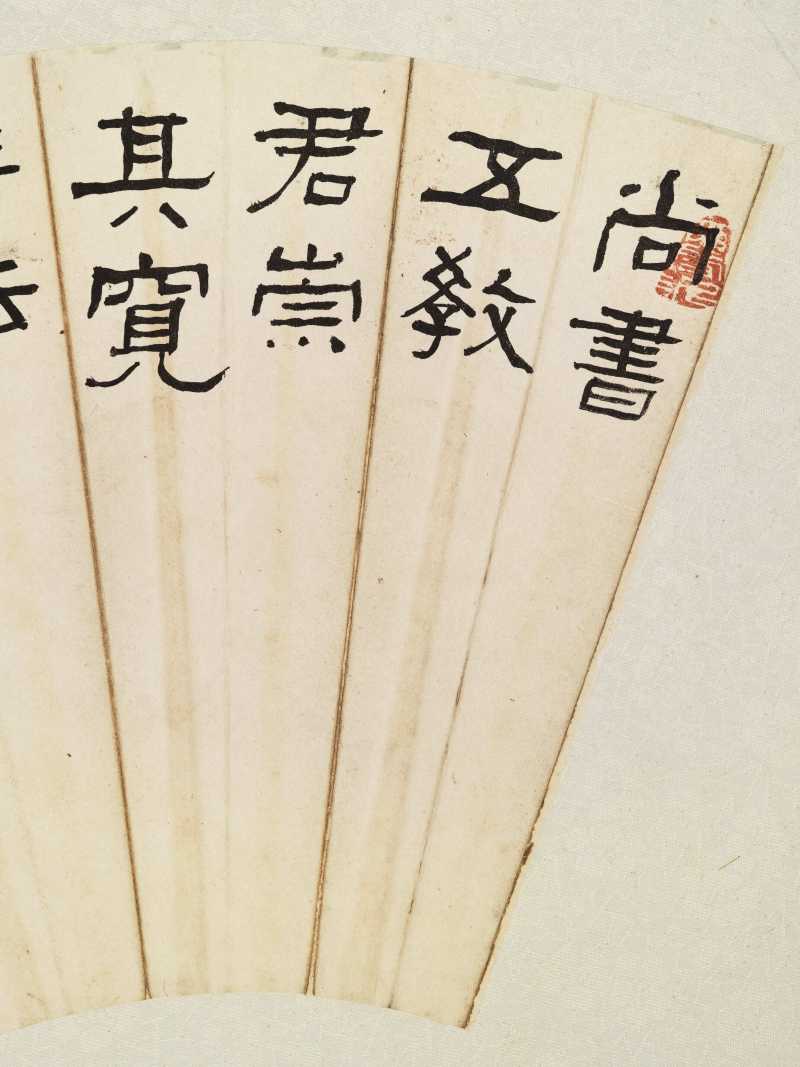 尚書
五教
君崇
其寬